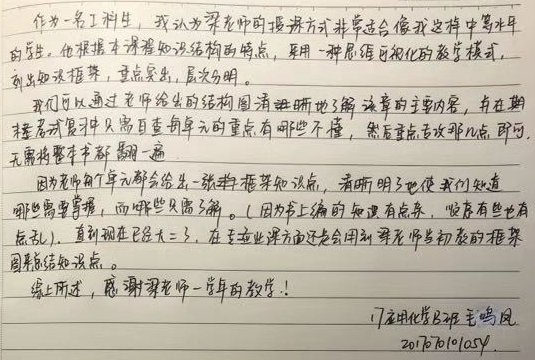 作为一名工科生，我认为梁老师的授课方式非常适合像我这样中等水平
的学生。他根据本课程知识结构的特点，采用一种思维可视化的教学模式，
列出知识框架，重点突出，层次分明。
我们可以通过老师给出的结构图清晰地了解该章的主要内容，并在期
末考试复习中只需自查每单元的重点有哪些不懂，然后重点击攻那几点即可，
无需将整本书都翻一遍
因为老师每个单元都会给出一张框架知识点，清晰明了地使我们知道
哪些需要掌握，而哪些只需了解。（因为书上编的知识有点杂，顺序有些也有
点乱）。直到现在已经大三了，在专业课方面还是会用到梁老师当初教的框架
图来总结知识点。
综上所述，感谢梁老师一学年的教学！
17应用化学B班 毛鸣凤
201707010105